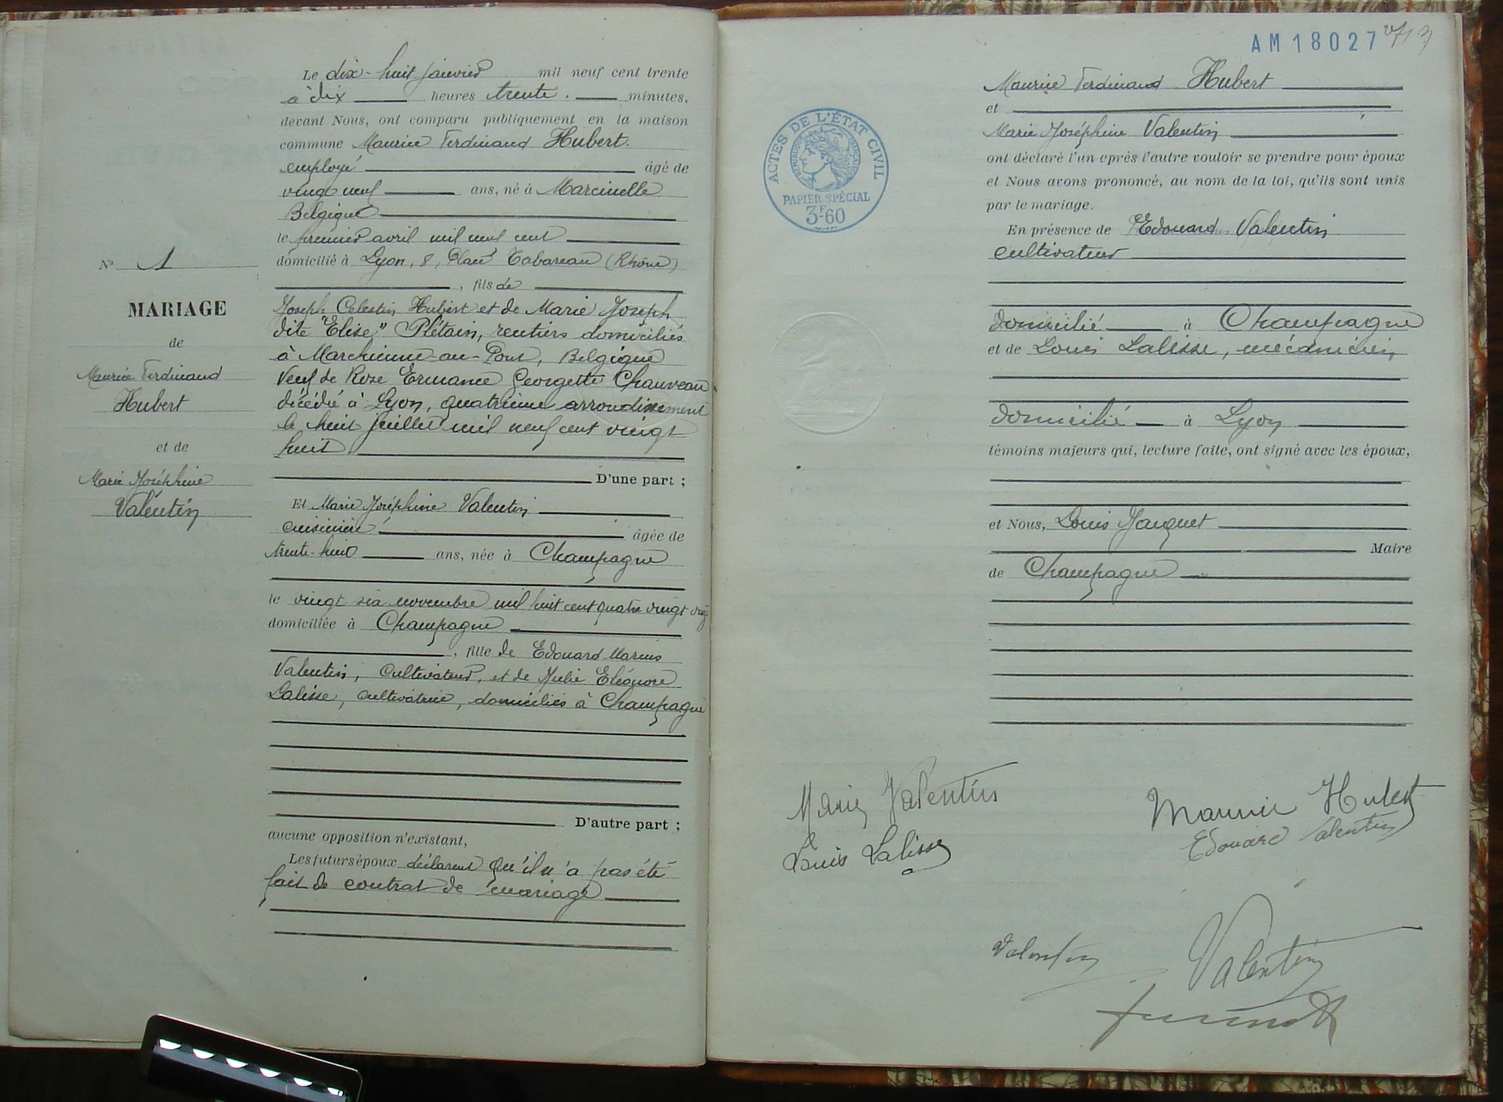 Le dix-huit janvier mil neuf cent trente
à dix heures trente. minutes,
devant Nous, ont comparu publiquement en la maison
commune Maurice Ferdinand Hubert.
employé âgé de
vingt neuf ans, né à Marcinelle
Belgique
le premier avril mil neuf cent
domicilié à Lyon, 8, Place Tabareau (Rhône)
, fils de
Joseph Célestin Hubert et de Marie Joseph
dite "Elise" Plétain, rentiers domiciliés
à Marchienne-au-Pont, Belgique
Veuf de Rose Ermance Georgette Chauveau
décédée à Lyon, quatrième arrondissement
le huit juillet mil neuf cent vingt
huit
D'une part ;
Et Marie Joséphine Valentin
cuisinière âgée de
trente-huit ans, née à Champagne
le vingt six novembre mil huit cent quatre vingt onze
domiciliée à Champagne
, fille de Edouard Marius
Valentin, cultivateur, et de Julie Eléonore
Lalisse, cultivatrice, domiciliés à Champagne
D'autre part ;
aucune opposition n'existant,
Les futurs époux déclarent qu'il n'a pas été
fait de contrat de mariage
N° 1
MARIAGE
de
Maurice Ferdinand
Hubert
et de
Marie Joséphine
Valentin
AM18027
ACTES DE L'ÉTAT CIVIL
PAPIER SPÉCIAL
3F60
Maurice Ferdinand Hubert
et
Marie Joséphine Valentin
ont déclaré l'un après l'autre vouloir se prendre pour époux
et Nous avons prononcé, au nom de la loi, qu'ils sont unis
par le mariage.
En présence de Edouard Valentin
cultivateur
domicilié à Champagne
et de Louis Lalisse, mécanicien,
domicilié à Lyon
témoins majeurs qui, lecture faite, ont signé avec les époux,
et Nous, Louis Jacquet
Maire
de Champagne
Marie Valentin
Maurice Hubert
Louis Lalisse
Edouard Valentin
Valentin
Valentin